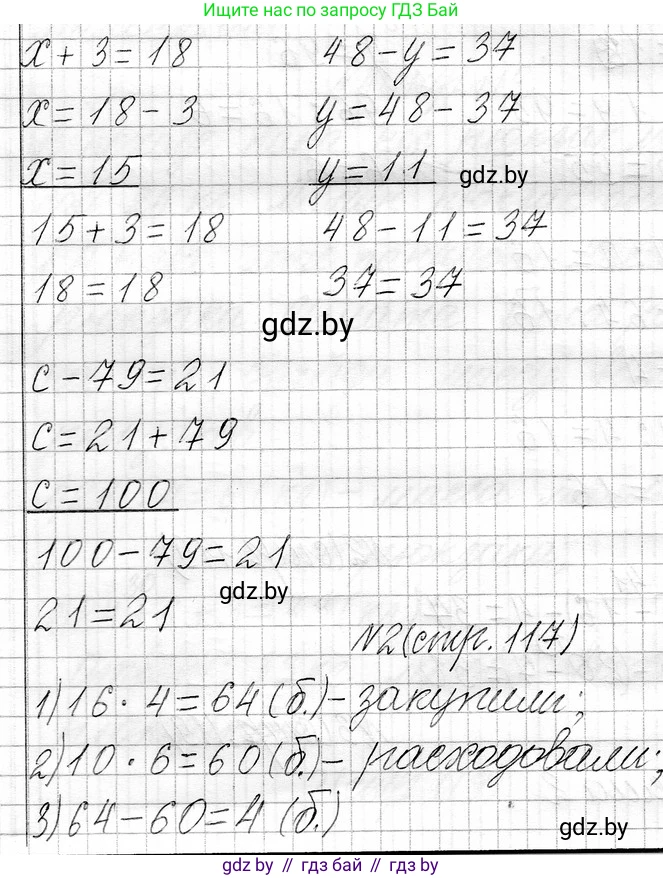 Ищите нас по запросу ГДЗ Бай
x + 3 = 18
x = 18 - 3
x = 15
15 + 3 = 18
18 = 18
48 - y = 37
y = 48 - 37
y = 11
gdz.by
48 - 11 = 37
37 = 37
gdz.by
c - 79 = 21
c = 21 + 79
c = 100
100 - 79 = 21
gdz.by
21 = 21
N2 (стр. 117)
1) 16 · 4 = 64 (б.) - закупили;
2) 10 · 6 = 60 (б.) - расходовали;
3) 64 - 60 = 4 (б.)
gdz.by
gdz.by // гдз бай // gdz.by